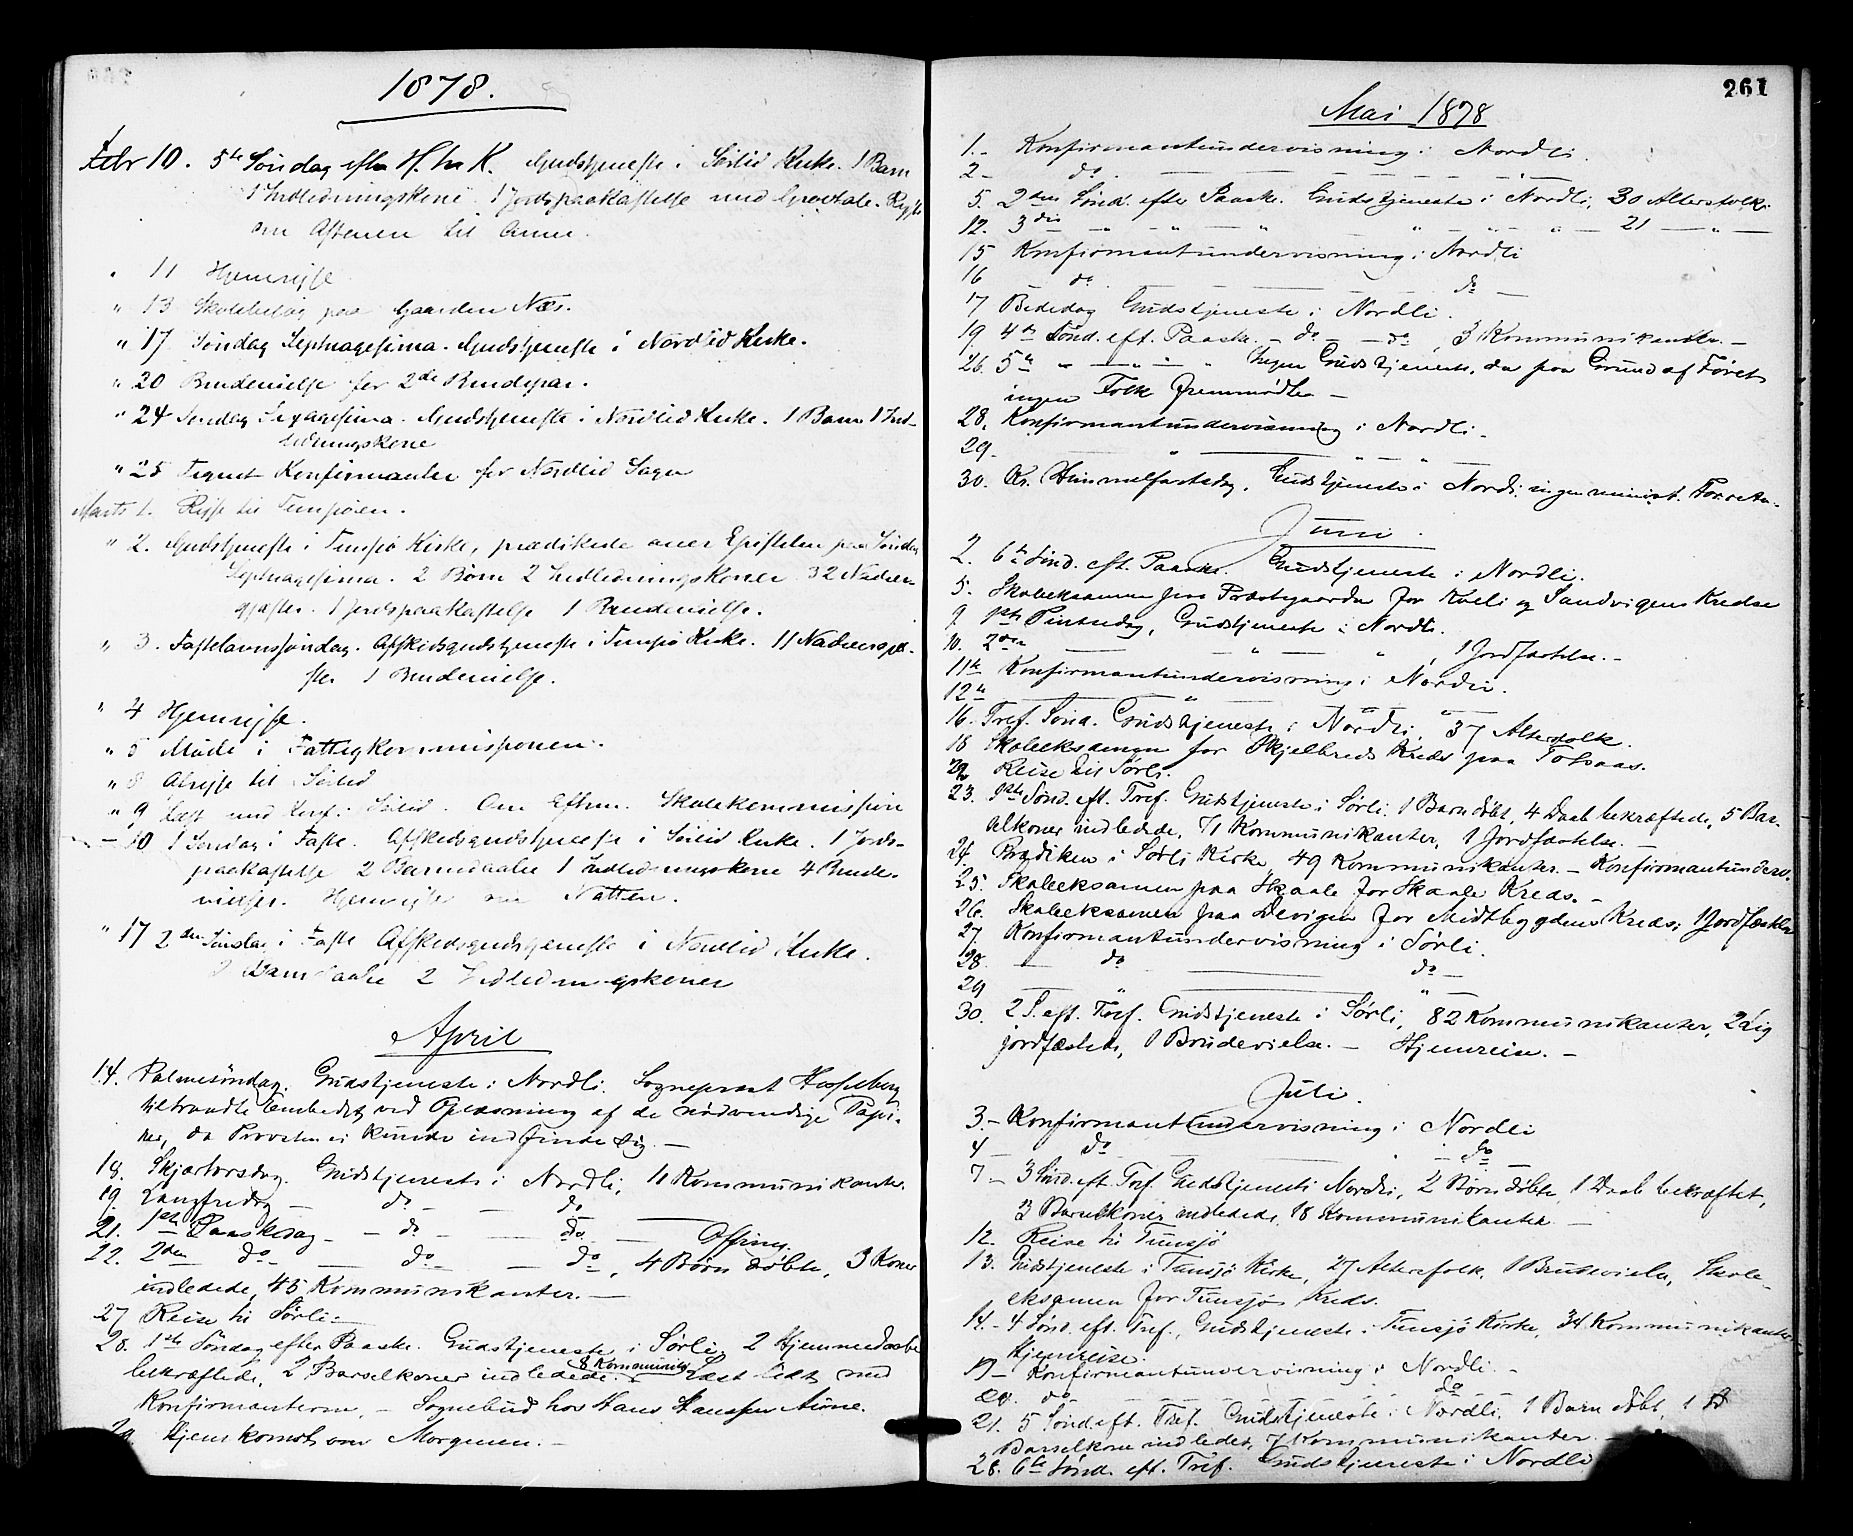 1878.
Febr 10. 5te Søndag efter H. tr. K. Gudstjeneste i Sørlid Kirke. 1 Barn
1 Indledningskone 1 Jordspaakastelse med Gravtale. Rejste
om Aftenen til Anne.
" 11 Hjemrejse
" 13 Skolebesøg paa Gaarden Næs.
" 17 Søndag Septuagesima. Gudstjeneste i Nordlid Kirke.
" 20 Brudevielse for 2de Brudepar.
" 24 Søndag Sexagesima. Gudstjeneste i Nordlid Kirke. 1 Barn 1 Ind-
ledningskone
" 25 Tegnet Konfirmanter for Nordlid Sogn
Marts 1. Rejse til Tunsjøen.
" 2. Gudstjeneste i Tunsjø Kirke, prædikede over Epistelen paa Søndag
Septuagesima. 2 Børn 2 Indledningskoner 32 Nadver-
gjæster. 1 Jordspaakastelse 1 Brudevielse.
" 3. Fastelavnssøndag. Afskedsgudstjeneste i Tunsjø Kirke. 11 Nadvergjæ-
ster 1 Brudevielse.
" 4 Hjemrejse.
" 5 Møde i Fattigkommissionen.
" 8 Afrejse til Sørlid
" 9 Læst med Konf. i Sørlid. Om Efterm. Skolekommission
— 10 1 Søndag i Faste. Afskedsgudstjeneste i Sørlid Kirke. 1 Jords-
paakastelse 2 Barnedaabe 1 Indledningskone 4 Brude-
vielser. Hjemrejste om Natten.
" 17 2den Søndag i Faste Afskedsgudstjeneste i Nordlid Kirke.
Barnedaabe 2 Indledningskoner
April
14. Palmesøndag. Gudstjeneste i Nordli. Sogneprest Hasselberg
tiltraadte Embedet ved Oplæsning af de nødvendige Papi-
rer, da Provsten ei kunde indfinde sig. —
18. Skjærtorsdag. Gudstjeneste i Nordli, 11 Kommunikanter.
19. Langfredag — do — — do
21. 1ste Paaskedag — — do — — do — Offring.
22. 2den do — — do — — do, 4 Børn døbte, 3 Koner
indledede, 45 Kommunikanter. —
27 Reise til Sørli. —
28. 1ste Søndag efter Paaske. Gudstjeneste i Sørli, 2 Hjemmedøbte
bekræftede, 2 Barselkoner indledede. 8 Kommunik. Læst lidt med
Konfirmanterne. — Sognebud hos Hans Hansen
29 Hjemkomst om Morgenen. —
261
Mai 1878
1. - Konfirmantundervisning i Nordli.
2 - do. — — — " —
5. 2den Sønd. efter Paaske. Gudstjeneste i Nordli, 30 Altersfolk.
12. 3die — " — " — " " — " — " — 21 — " —
15 Konfirmantundervisning i Nordli
16 do. — do —
17 Bededag Gudstjeneste i Nordli.
19 4de Sønd. eft. Paaske. — do — — do, 3 Kommunikanter. —
26. 5te " — " — " Ingen Gudstjeneste, da paa Grund af Føret
ingen Folk fremmødte —
28. Konfirmantundervisning i Nordli.
29. — " — " — " —
30. Kr. Himmelfartsdag. Gudstjeneste i Nordli. ingen minist. Forretn.
Juni.
2. 6te Sønd. eft. Paaske. Gudstjeneste i Nordli.
5. Skoleeksamen paa Præstgaarden for Kveli og Sandvigens Kredse
9. 1ste Pintsedag, Gudstjeneste i Nordli.
10. 2den — — " — ", 1 Jordfæstelse. —
11te Konfirmantundervisning i Nordli.
12te — " — " —
16. Tref. Sønd. Gudstjeneste i Nordli, 37 Altersfolk.
18 Skoleeksamen for Skjelbreds Kreds paa Tosaas.
22 Reise til Sørli.
23. 1ste Sønd. eft. Tref. Gudstjeneste i Sørli. 1 Barn døbt, 4 Daab bekræftede, 5 Bar-
selkoner indledede, 71 Kommunikanter, 1 Jordfæstelse. —
24. Prædiken i Sørli Kirke, 49 Kommunikanter. — Konfirmantunderv.
25. Skoleeksamen paa Skaale for Skaale Kreds. —
26. Skoleeksamen paa Devigen for Midtbygdens Kreds; 1 Jordfæstelse
27. Konfirmantundervisning i Sørli.
28. — do — do —
29 — " — " —
30. 2 S. eft. Tref. Gudstjeneste i Sørli, 82 Kommunikanter, 2 Lig
jordfæstede, 1 Brudevielse. — Hjemreise. —
Juli.
3. - Konfirmantundervisning i Nordli
4 — do — do —
7 — 3 Sønd. eft. Tref. Gudstjeneste i Nordli, 2 Børn døbte, 1 Daab bekræftet,
3 Barselkoner indledede, 18 Kommunikanter. —
12. Reise til Tunsjø
13. Gudstjeneste i Tunsjø Kirke, 27 Altersfolk, 1 Brudevielse, Skole-
eksamen for Tunsjø Kreds.
14. - 4 Sønd. eft. Tref., Gudstjeneste i Tunsjø Kirke, 34 Kommunikanter
Hjemreise.
19 — Konfirmantundervisning i Nordli. —
20. do — — do
21. 5 Sønd. eft. Tref. Gudstjeneste i Nordli, 1 Barn døbt, 1
Barselkone indledet, 7 Kommunikanter. —
28. 6te Sønd. eft. Tref. Gudstjeneste i Nordli